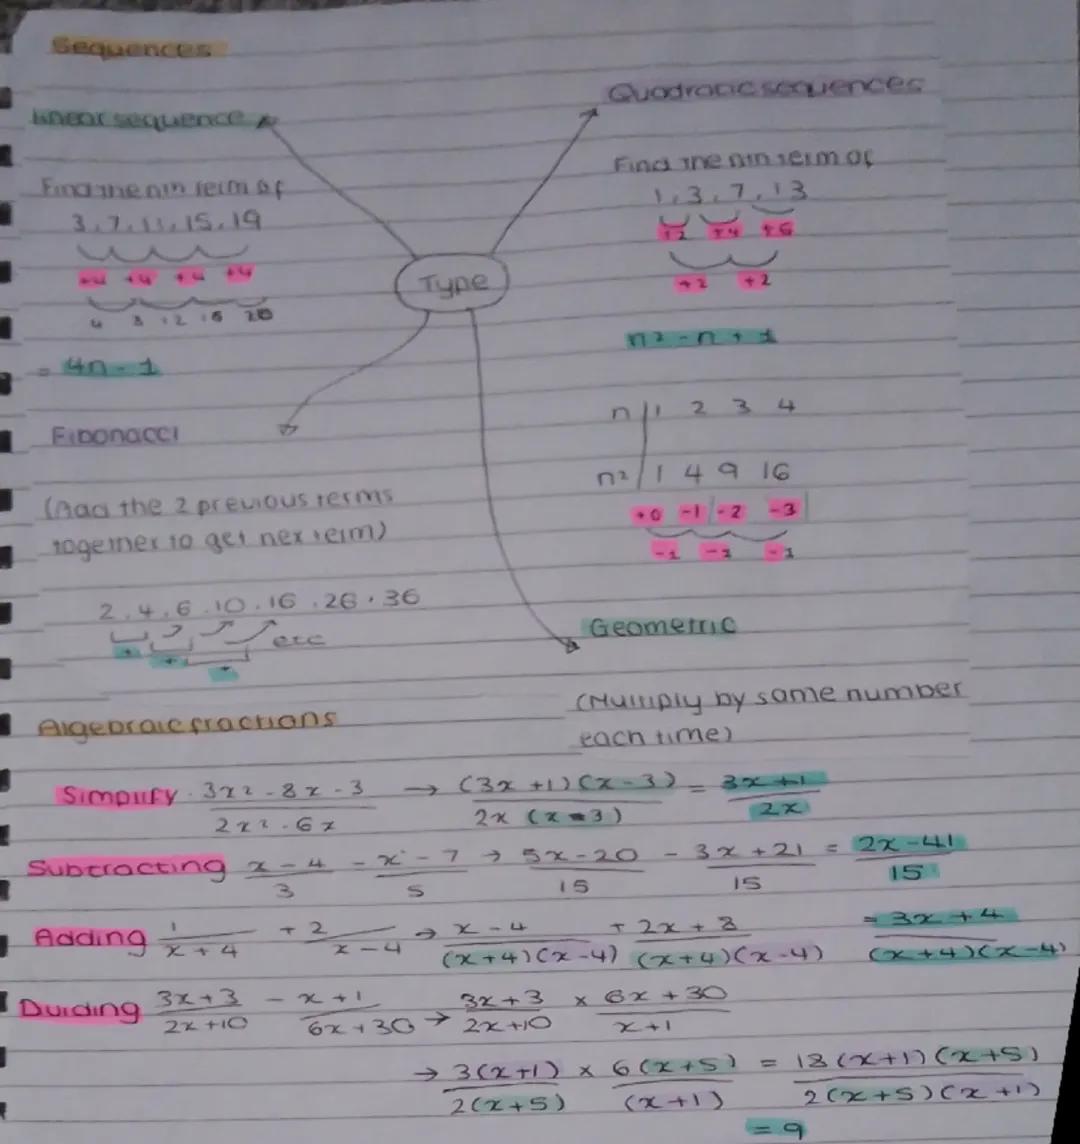 Sequences
Linear sequence
Find the nth term of
3, 7, 11, 15, 19
+4 +4 +4 +4
4 8 12 16 20
= 4n - 1
Quadratic sequences
Find the nth term of
1, 3, 7, 13
+2 +4 +6
+2 +2
n² - n + 1
n | 1 2 3 4
n² | 1 4 9 16
+0 -1 -2 -3
-1 -1 -1
Type
Fibonacci
(Add the 2 previous terms
together to get nex term)
2, 4, 6, 10, 16, 26, 36
etc
+ + +
Geometric
(Multiply by same number
each time)
Algebraic fractions
Simplify 3x² - 8x - 3 / 2x² - 6x → (3x + 1)(x - 3) / 2x (x - 3) = 3x + 1 / 2x
Subtracting x - 4 / 3 - x - 7 / 5 → 5x - 20 / 15 - 3x + 21 / 15 = 2x - 41 / 15
Adding 1 / x + 4 + 2 / x - 4 → x - 4 / (x + 4)(x - 4) + 2x + 8 / (x + 4)(x - 4) = 3x + 4 / (x + 4)(x - 4)
Dividing 3x + 3 / 2x + 10 - x + 1 / 6x + 30 → 3x + 3 / 2x + 10 × 6x + 30 / x + 1
→ 3(x + 1) / 2(x + 5) × 6(x + 5) / (x + 1) = 18(x + 1)(x + 5) / 2(x + 5)(x + 1)
= 9